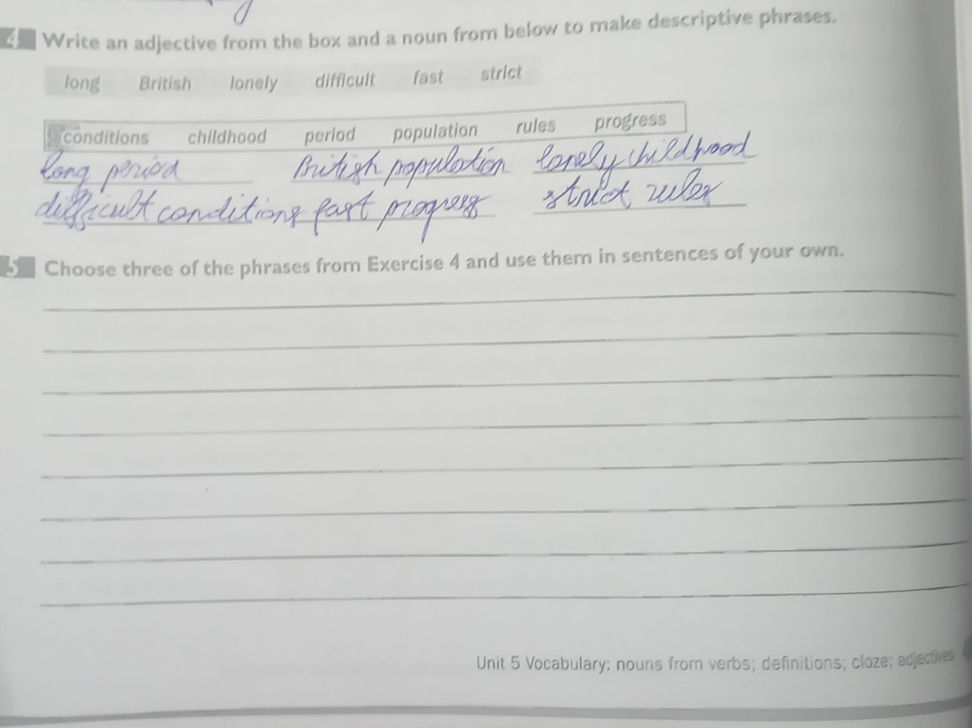 4 Write an adjective from the box and a noun from below to make descriptive phrases.
long British lonely difficult fast strict
conditions childhood period population rules progress
long period British population lonely childhood
difficult conditions fast progress strict rules
5 Choose three of the phrases from Exercise 4 and use them in sentences of your own.
Unit 5 Vocabulary: nouns from verbs; definitions; cloze; adjectives